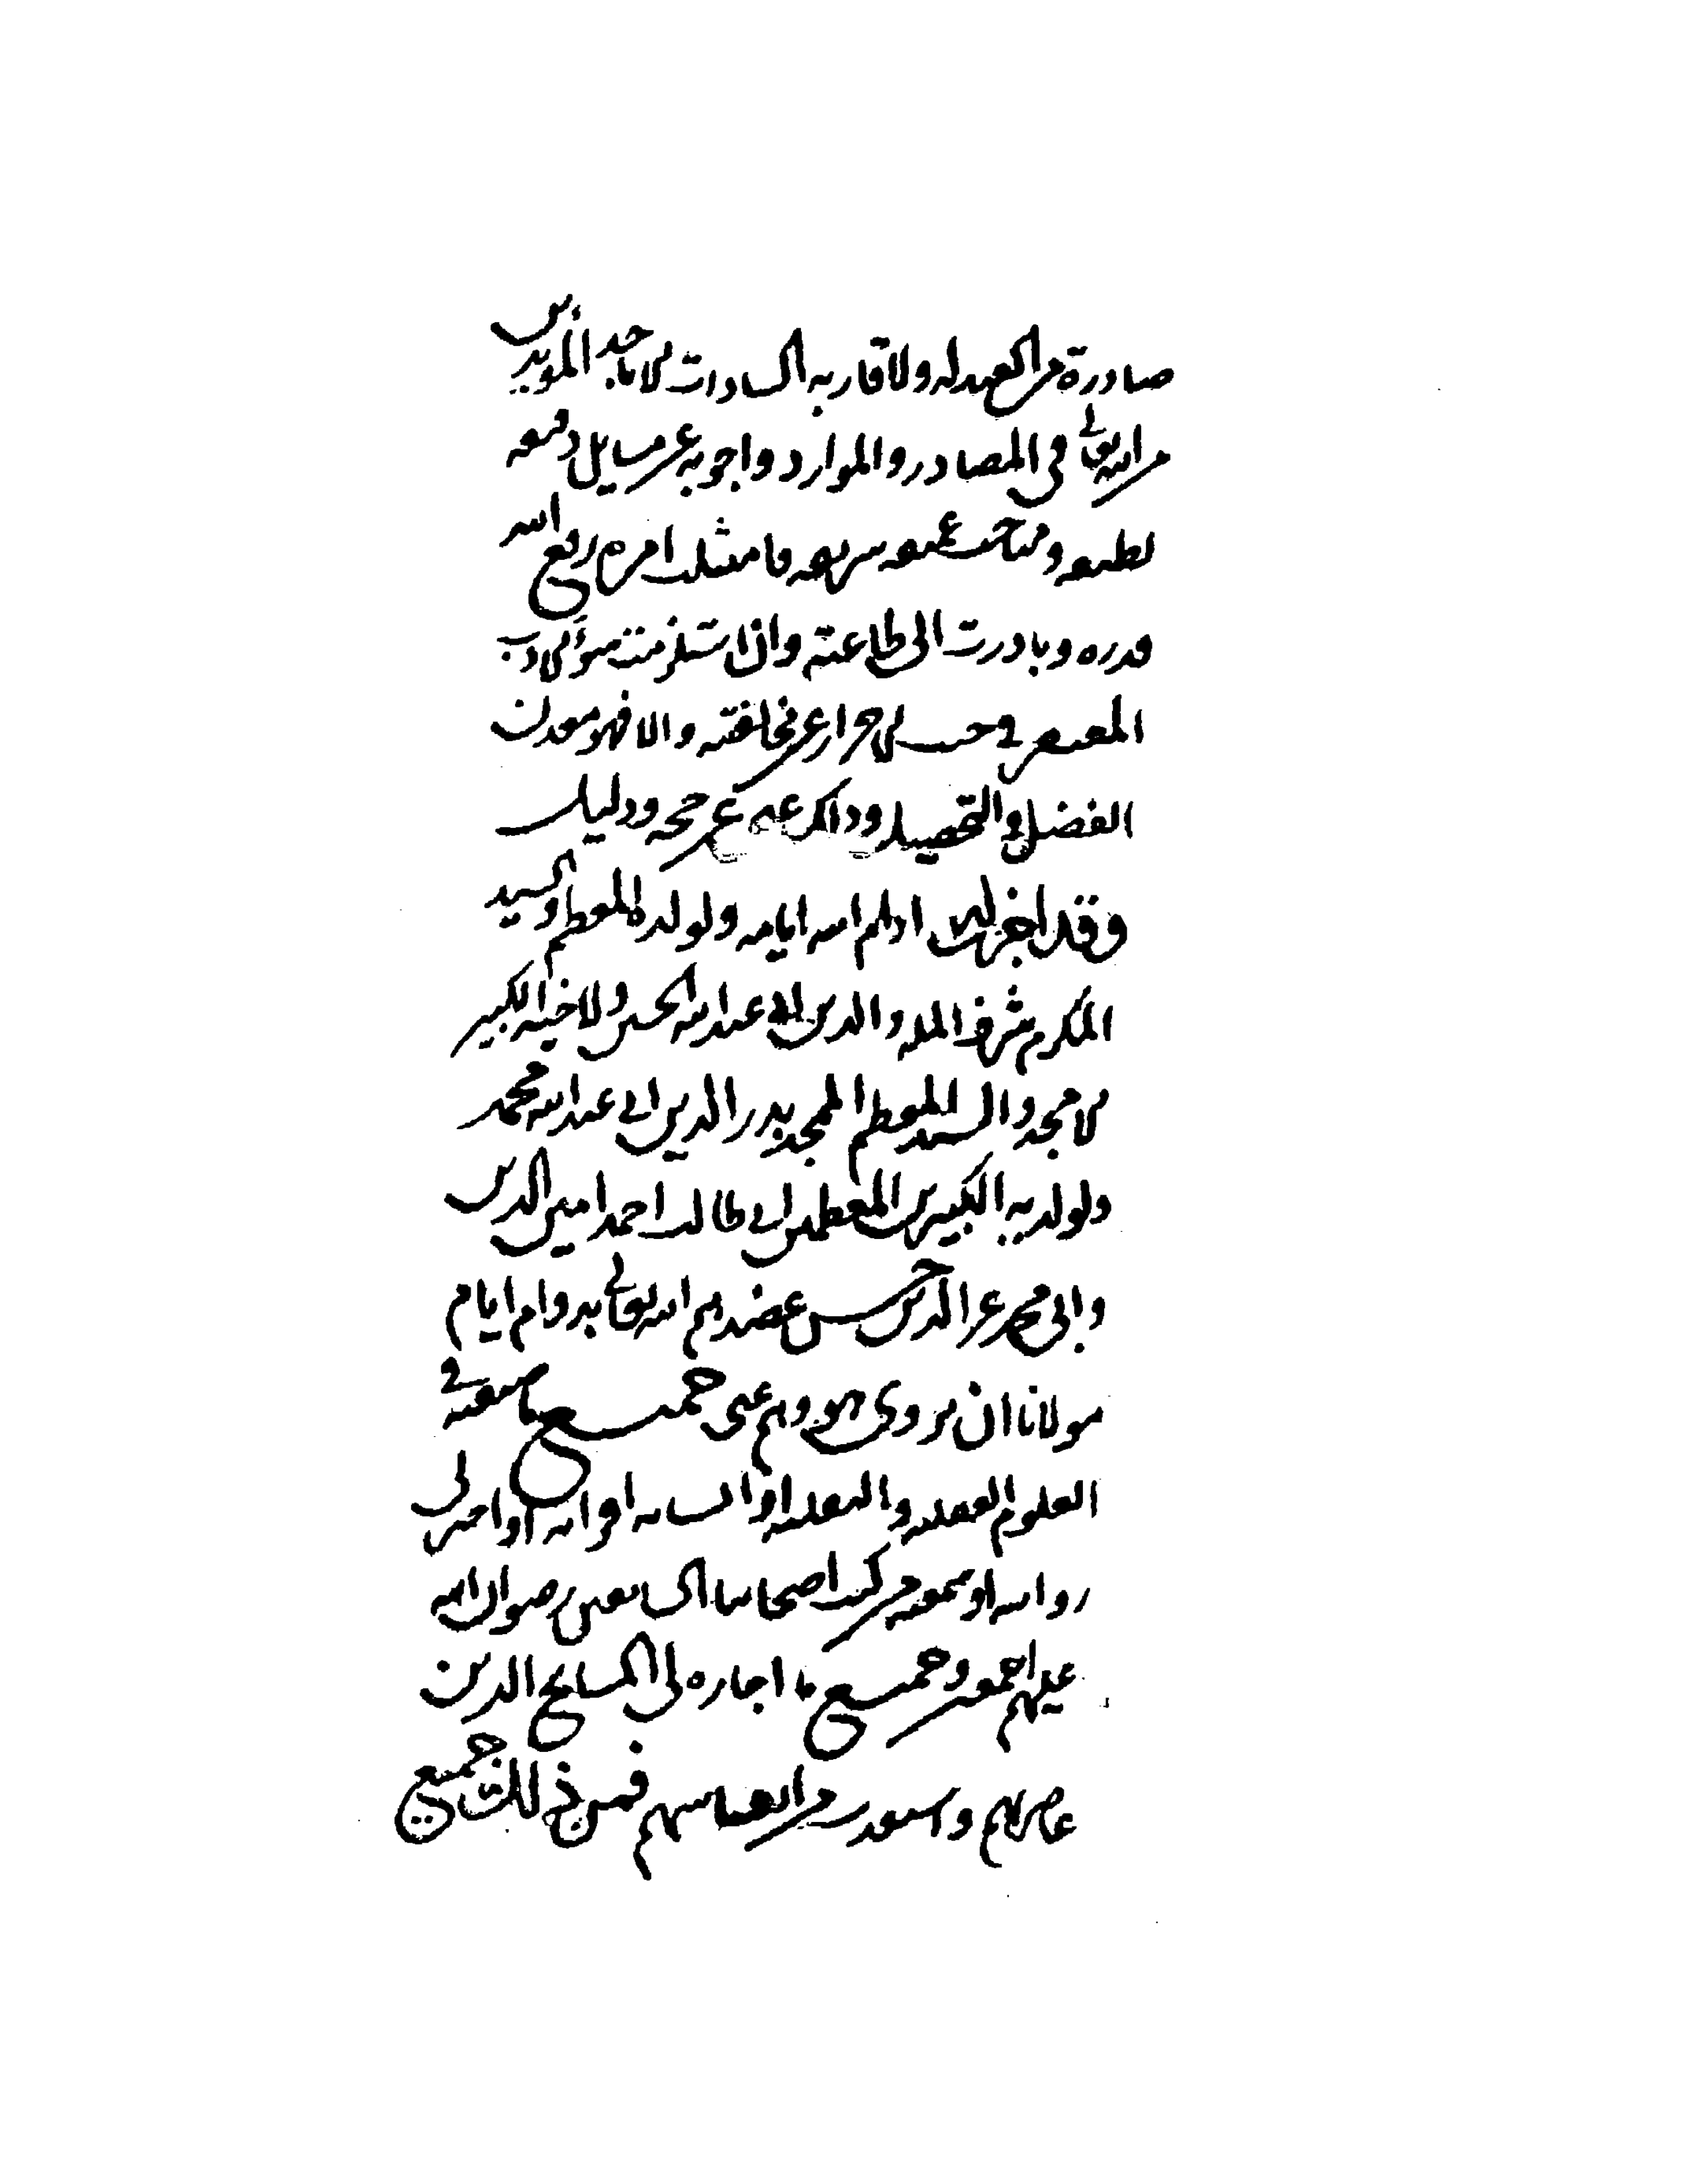 صادرة من العبد له ولاقاربه السادات الاماجد المؤيدين
من الله تعالى في المصادر والموارد واجوبة عن مسايل دقيقة
لطيفة ومباحث عميقة شريفة فامتثلت امره رفع الله
قدره وبادرت الى طاعته وان استلزمت سوء الادب
المغتفر في جنب الاحتراز عن مخالفته والا فهو معدن
الفضل والتحصيل وذلك غني عن حجة ودليل
وقد اجزت له ادام الله ايامه ولولده المعظم والسيد
المكرم شرف الملة والدين ابي عبد الله الحسين ولاخيه الكبير
الامجد والسيد المعظم الممجد بدر الدين ابي عبد الله محمد
ولولديه الكبيرين المعظمين ابي طالب احمد امين الدين
وابي محمد عز الدين حسن عضدهم الله تعالى بدوام ايام
مولانا ان يروي هو وهم عني جميع ما صنفته في
العلوم العقلية والنقلية او انشاته او قراته او اجيز لي
روايته او سمعته من كتب اصحابنا السابقين رضوان الله
عليهم اجمعين وجميع ما اجازه لي المشايخ الذين
عاصرتهم واستفدت من انفاسهم فمن ذلك جميع